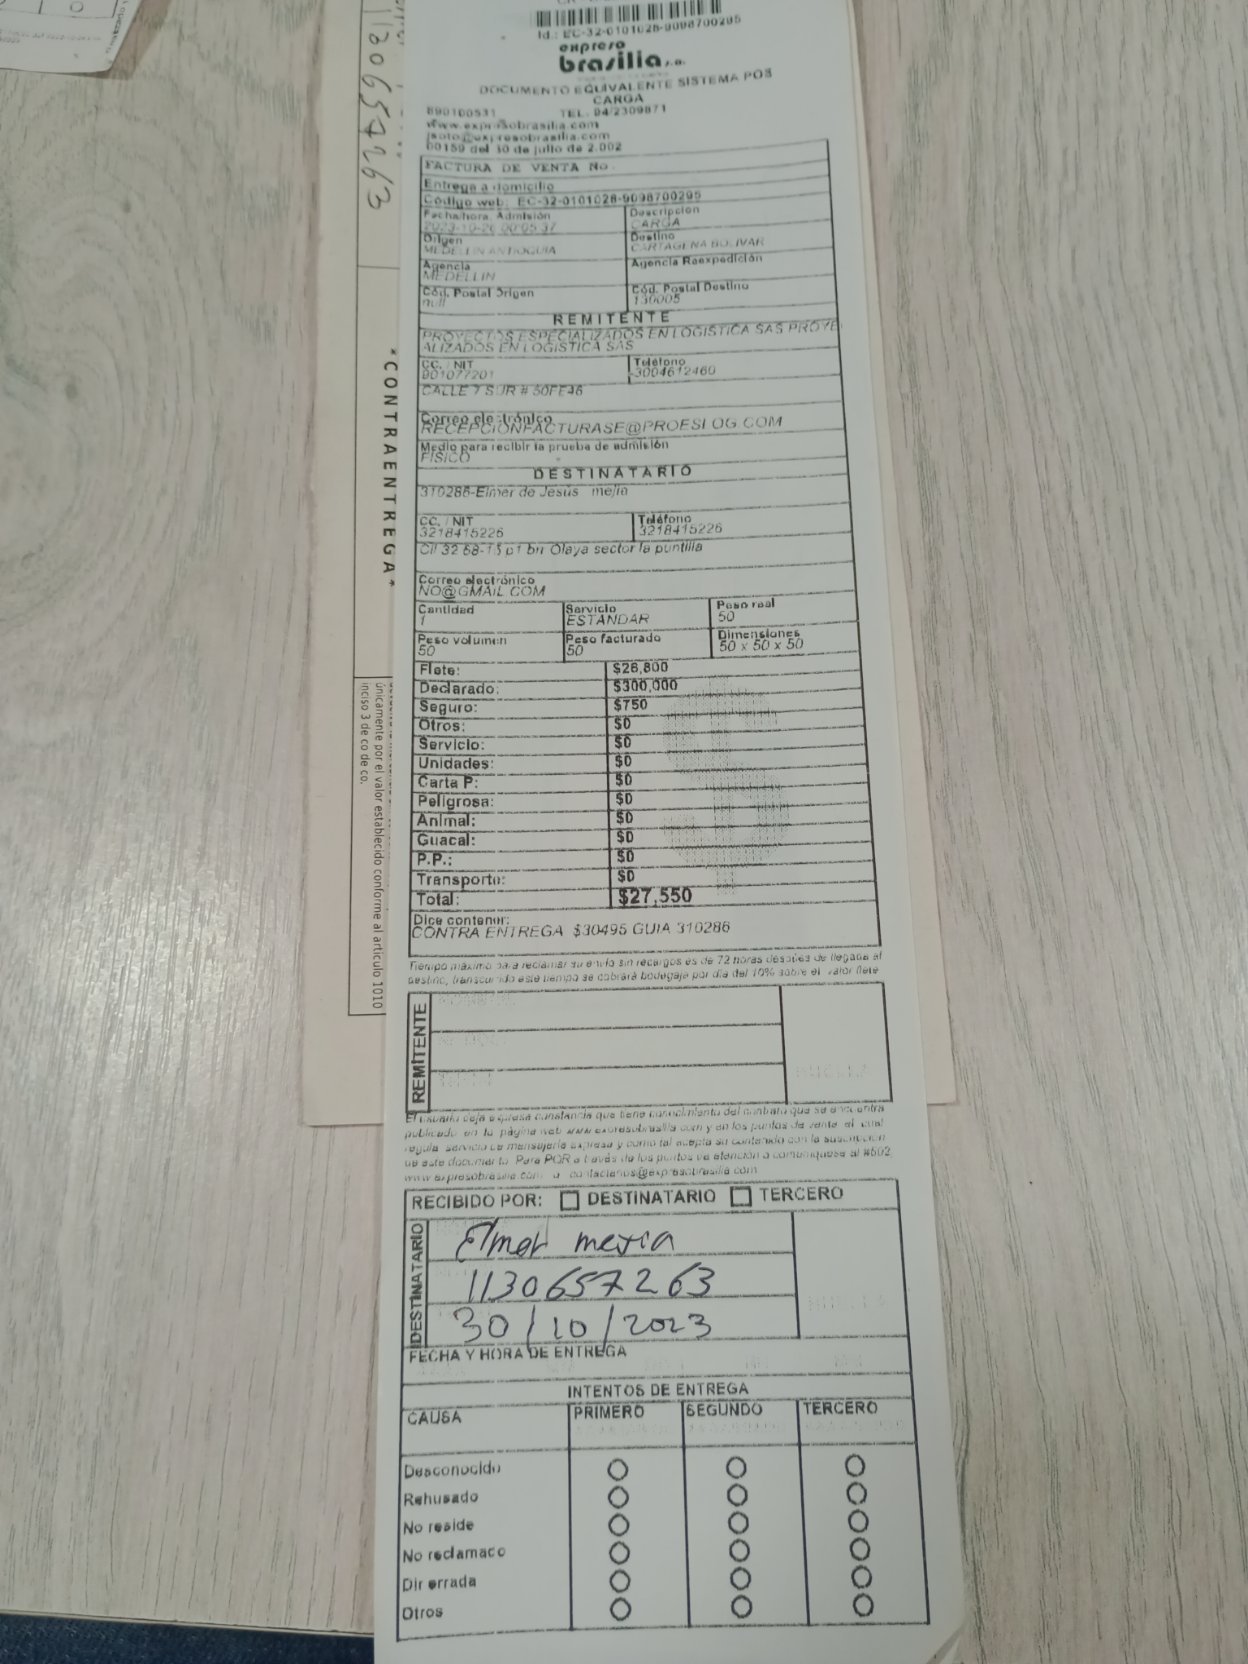 Id.: EC-32-0101028-9098700295
expreso
brasilia s.a.
DOCUMENTO EQUIVALENTE SISTEMA POS
CARGA
890100531 TEL. 94/2309871
www.expresobrasilia.com
jsoto@expresobrasilia.com
00159 del 30 de julio de 2.002
FACTURA DE VENTA No.
Entrega a domicilio
Código web: EC-32-0101028-9098700295
Fecha/hora Admisión Descripción
2023-10-26 00:05:37 CARGA
Origen Destino
MEDELLIN ANTIOQUIA CARTAGENA BOLIVAR
Agencia Agencia Reexpedición
MEDELLIN
Cód. Postal Origen Cód. Postal Destino
null 130005
REMITENTE
PROYECTOS ESPECIALIZADOS EN LOGISTICA SAS PROYE
ALIZADOS EN LOGISTICA SAS
CC. / NIT Teléfono
901077201 3004612460
CALLE 7 SUR # 50FF46
Correo electrónico
RECEPCIONFACTURASE@PROESLOG.COM
Medio para recibir la prueba de admisión
FISICO
DESTINATARIO
310286-Elmer de Jesús mejia
CC. / NIT Teléfono
3218415226 3218415226
Cll 32 68-15 p1 brr Olaya sector la puntilla
Correo electrónico
NO@GMAIL.COM
Cantidad Servicio Peso real
1 ESTANDAR 50
Peso volumen Peso facturado Dimensiones
50 50 50 x 50 x 50
Flete: $26,800
Declarado: $300,000
Seguro: $750
Otros: $0
Servicio: $0
Unidades: $0
Carta P: $0
Peligrosa: $0
Animal: $0
Guacal: $0
P.P.: $0
Transporte: $0
Total: $27,550
Dice contener:
CONTRA ENTREGA $30495 GUIA 310286
Tiempo máximo para reclamar su envío sin recargos es de 72 horas después de llegada al
destino, transcurrido este tiempo se cobrará bodegaje por día del 10% sobre el valor flete
REMITENTE
El usuario deja expresa constancia que tiene conocimiento del contrato que se encuentra
publicado en la página web www.expresobrasilia.com y en los puntos de venta el cual
regula servicio de mensajería expresa y como tal acepta su contenido con la suscripción
de este documento. Para PQR a través de los puntos de atención o comuníquese al #502
www.expresobrasilia.com o contactenos@expresobrasilia.com
RECIBIDO POR: DESTINATARIO TERCERO
DESTINATARIO
Elmer mexia
1130657263
30/10/2023
FECHA Y HORA DE ENTREGA
INTENTOS DE ENTREGA
CAUSA PRIMERO SEGUNDO TERCERO
Desconocido
Rehusado
No reside
No reclamado
Dir errada
Otros
1130657263
*CONTRAENTREGA*
únicamente por el valor establecido conforme al artículo 1010
inciso 3 de co de co.